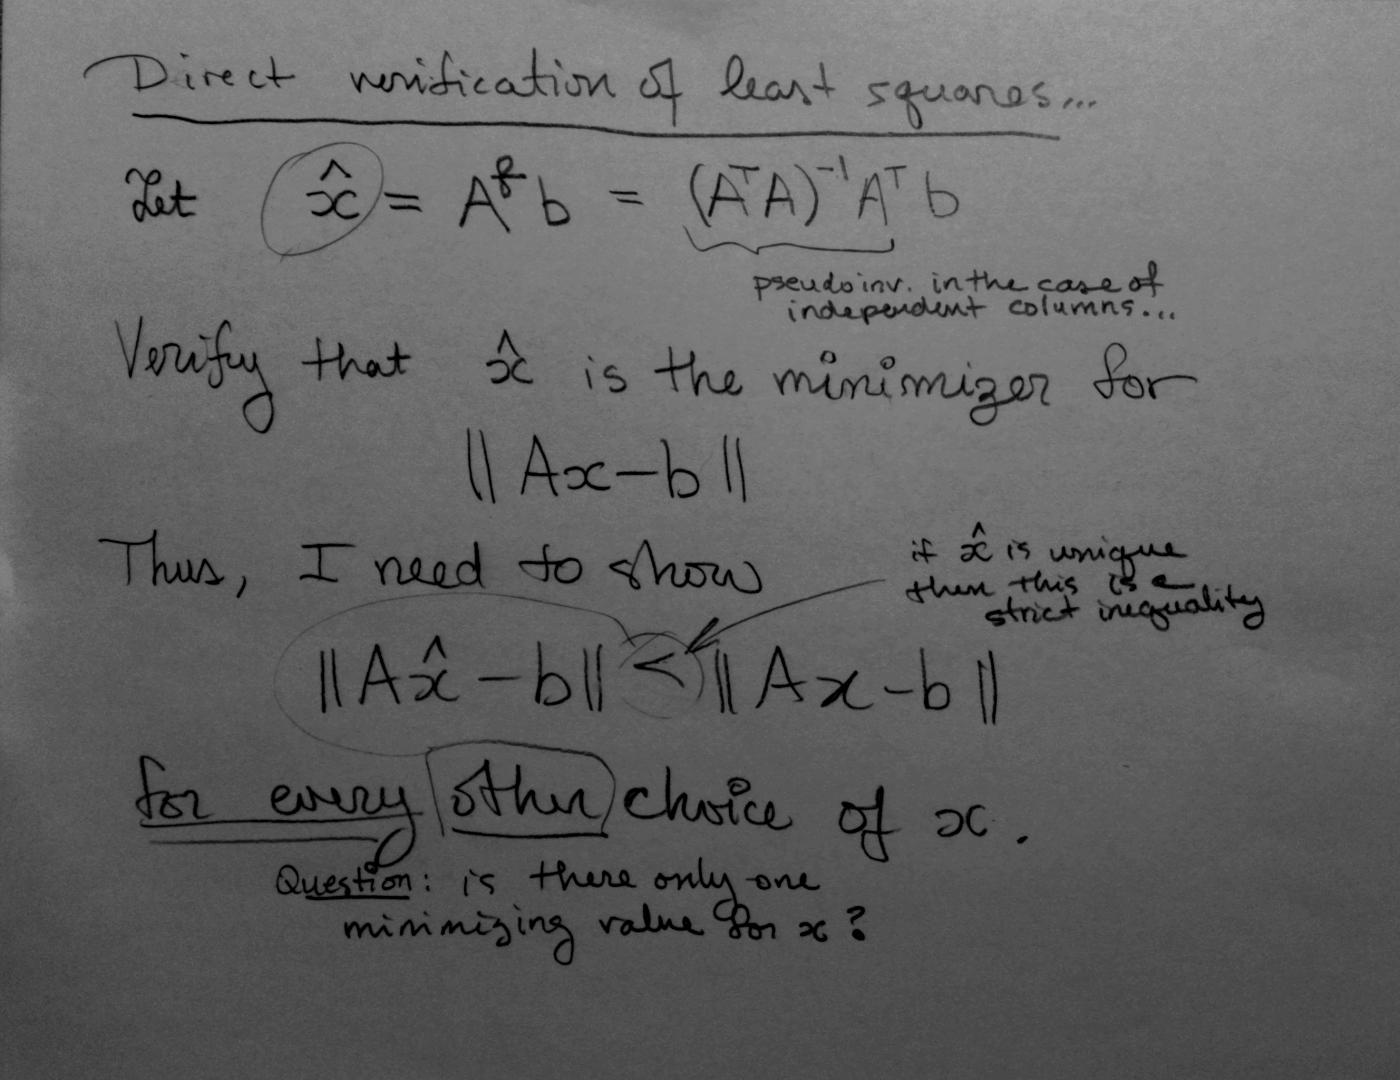 Direct verification of least squares...
Let x̂ = A^† b = (AᵀA)⁻¹Aᵀ b
pseudoinv. in the case of
independent columns...
Verify that x̂ is the minimizer for
‖ Ax-b ‖
Thus, I need to show
if x̂ is unique
then this is a
strict inequality
‖Ax̂ - b‖ < ‖Ax - b‖
for every other choice of x.
Question: is there only one
minimizing value for x?